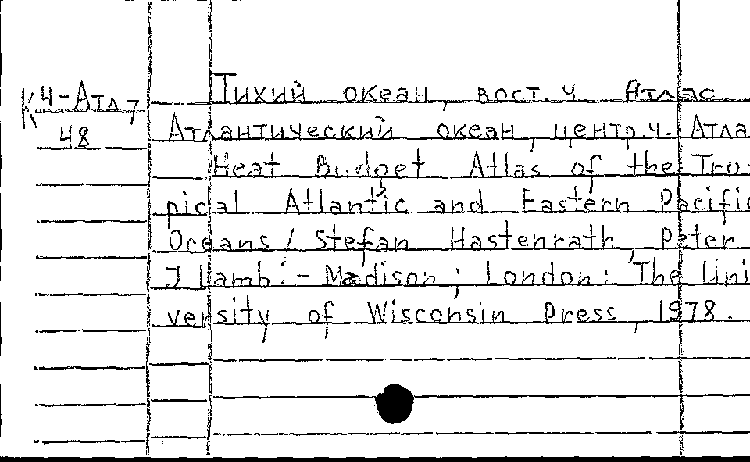 К 4-Атл7
48
Тихий океан, вост. ч. Атлас
Атлантический океан, центр.ч. Атла
Heat Budget Atlas of the Tro-
pical Atlantic and Eastern Pacific
Oceans / Stefan Hastenrath, Peter
J Lamb. - Madison ; London : The Uni
versity of Wisconsin Press, 1978.